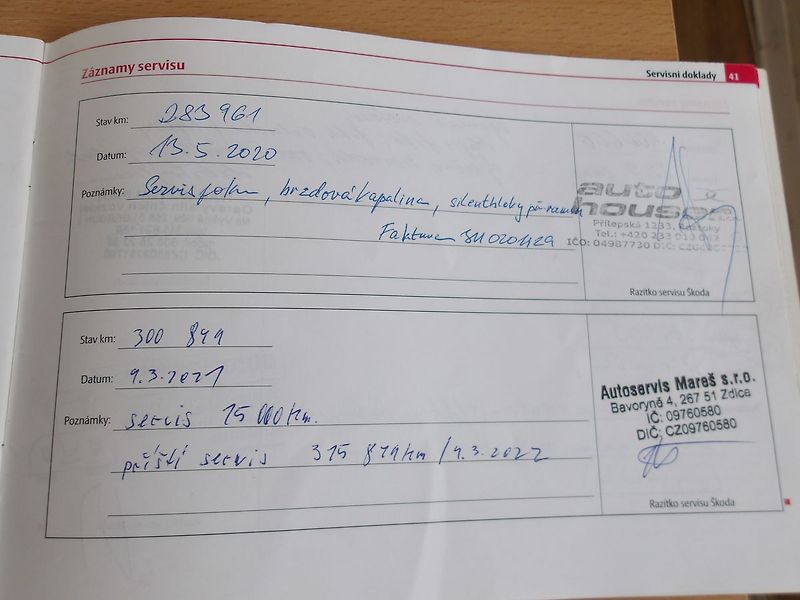 Záznamy servisu
Servisní doklady 41
Stav km: 283 961
Datum: 13.5.2020
Poznámky: Servis, brzdová kapalina, silentbloky
Faktura
auto
house
Přílepská 1233, Roztoky
Tel.: +420 233
IČO: 04987730 DIČ:
Razítko servisu Škoda
Stav km: 300 849
Datum: 9.3.2021
Poznámky: servis 15 000 km.
příští servis 315 849 km / 9.3.2022
Autoservis Mareš s.r.o.
Bavoryně 4, 267 51 Zdice
IČ: 09760580
DIČ: CZ09760580
Razítko servisu Škoda